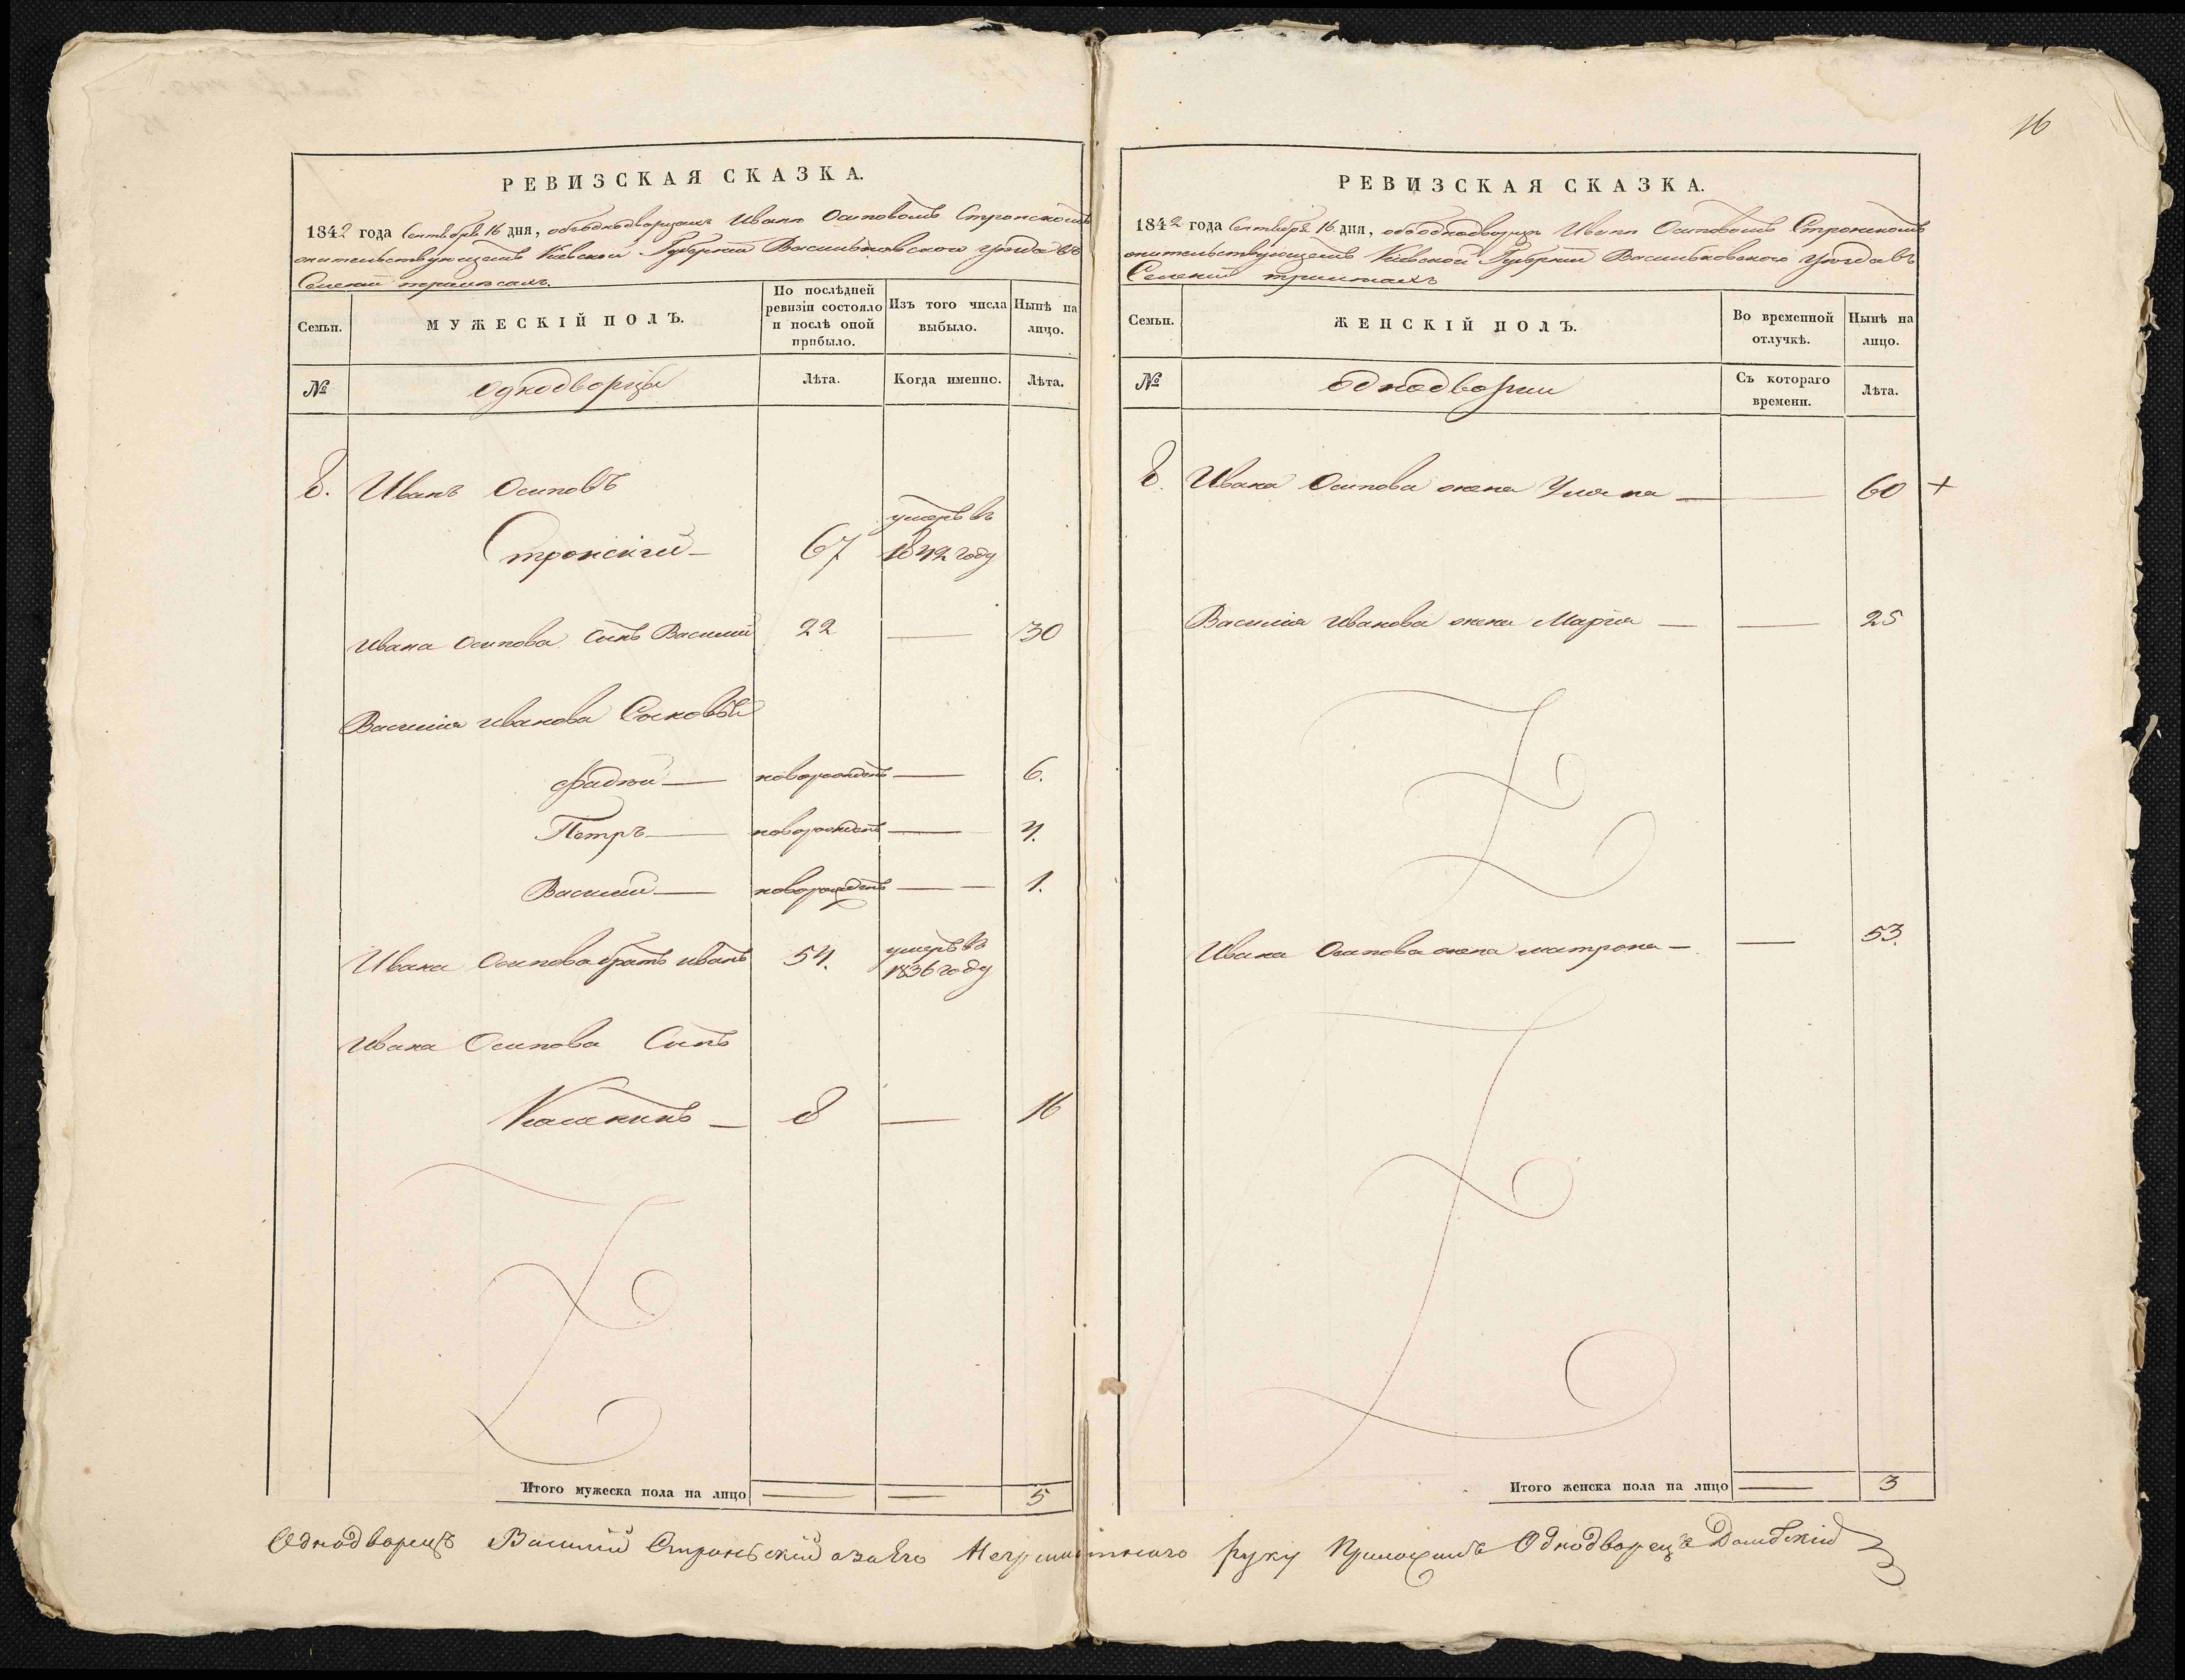 16
РЕВИЗСКАЯ СКАЗКА.
1842 года Сентября 16 дня, объ однодворцахъ Иванѣ Осиповомъ Стронскомъ
жительствующемъ Кіевской Губерніи Васильковскаго уѣзда въ
Селеніи
Семьи.
МУЖЕСКІЙ ПОЛЪ.
По послѣдней ревизіи состояло и послѣ оной прибыло.
Изъ того числа выбыло.
Нынѣ на лицо.
№
однодворцы
Лѣта.
Когда именно.
Лѣта.
8. Иванъ Осиповъ
Стронскій — 67 умеръ въ 1842 году
Ивана Осипова Сынъ Василий 22 — 30
Василія Иванова Сыновья
Фадѣй — новорожденъ — 6.
Петръ — новорожденъ — 4.
Василий — новорожденъ — 1.
Ивана Осипова братъ Иванъ 54. умеръ въ 1836 году
Ивана Осипова Сынъ
8 — 16
Итого мужеска пола на лицо — — 5
РЕВИЗСКАЯ СКАЗКА.
1842 года Сентября 16 дня, объ однодворцѣ Иванѣ Осиповомъ Стронскомъ
жительствующемъ Кіевской Губерніи Васильковскаго уѣзда въ
Селеніи
Семьи.
ЖЕНСКІЙ ПОЛЪ.
Во временной отлучкѣ.
Нынѣ на лицо.
№
однодворки
Съ котораго времени.
Лѣта.
8. Ивана Осипова жена Уляна — — 60 +
Василія Иванова жена Марія — — 25
Ивана Осипова жена матрона — — 53.
Итого женска пола на лицо — 3
Однодворецъ Василий Строньский а за Его Неграмотнаго руку Приложилъ Однодворецъ